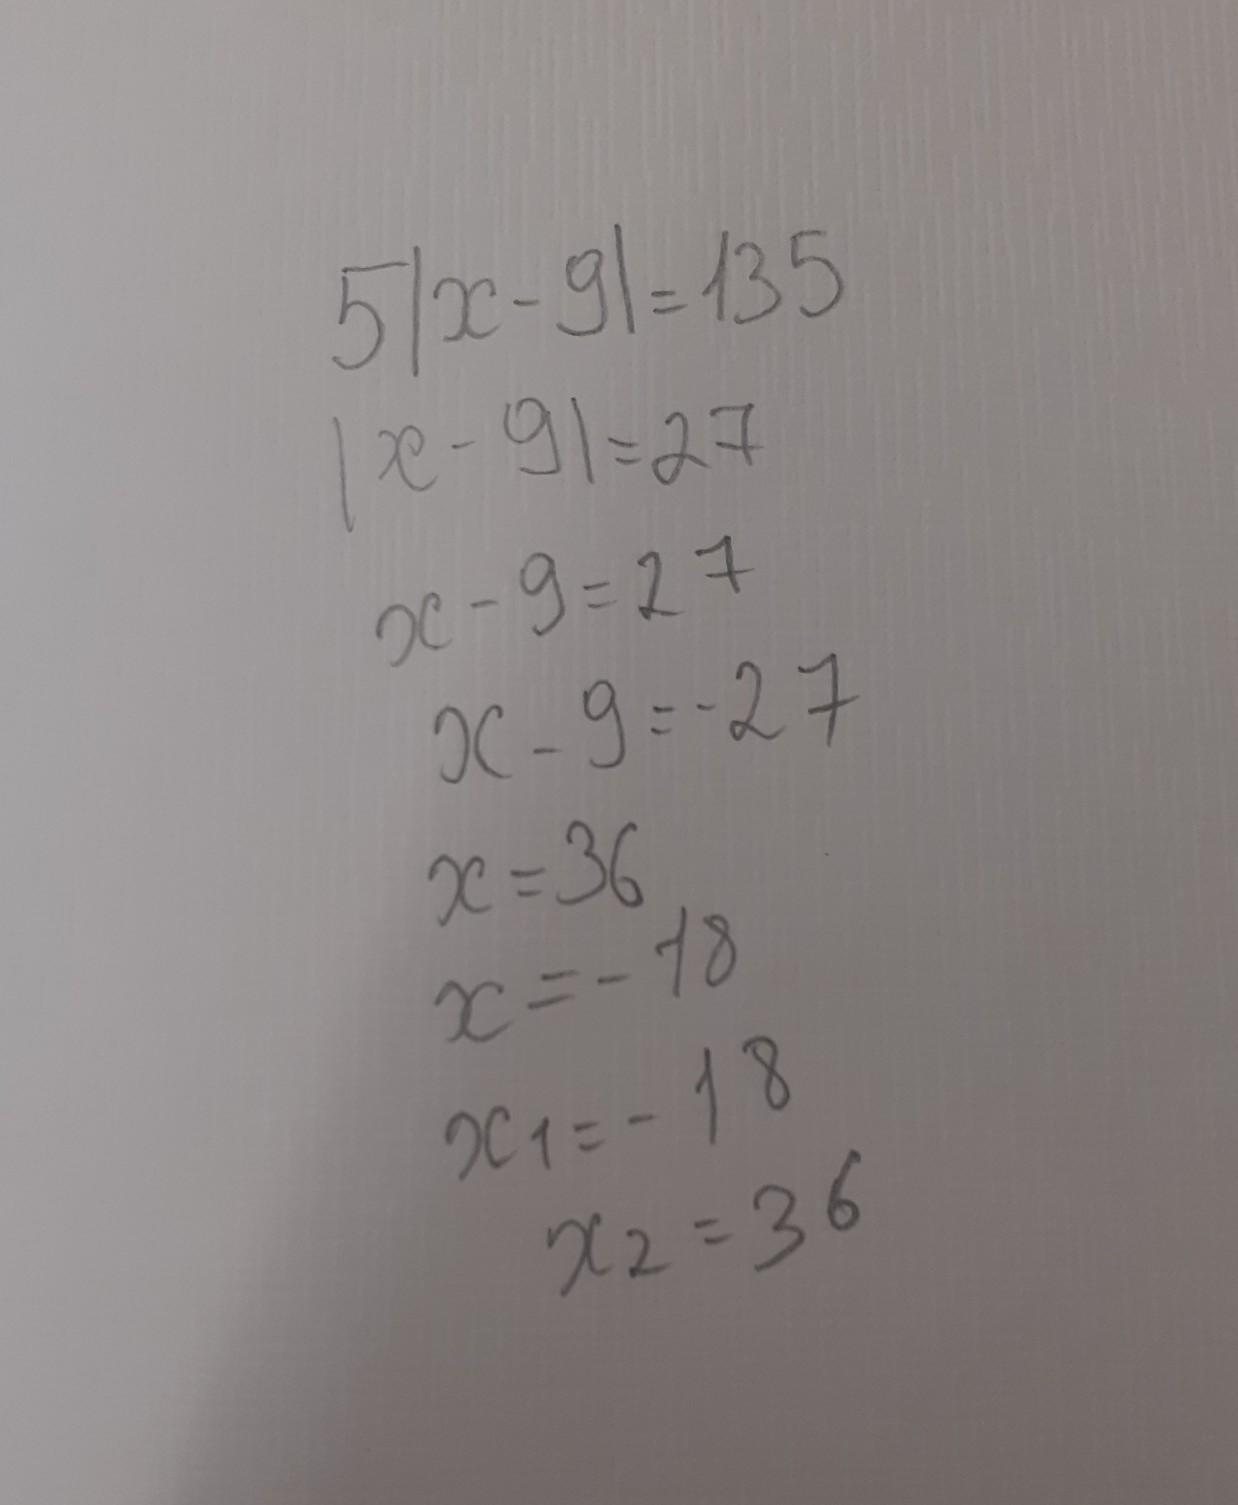 5|x-9|=135
|x-9|=27
x-9=27
x-9=-27
x=36
x=-18
x1=-18
x2=36